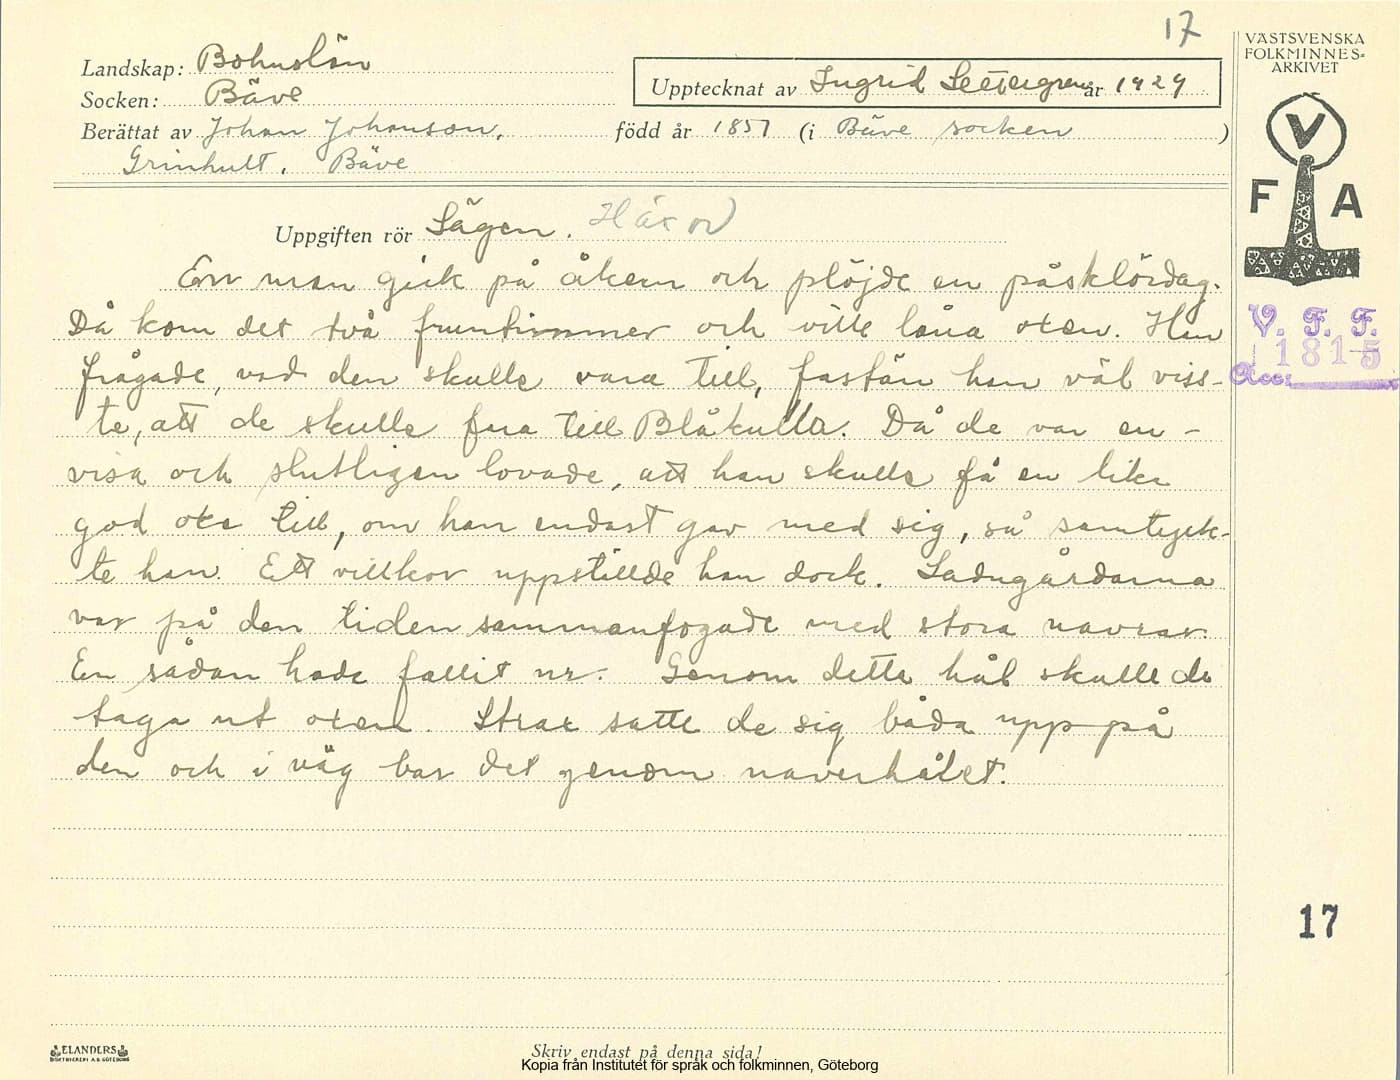 17
VÄSTSVENSKA
FOLKMINNES=
ARKIVET
Landskap: Bohuslän
Socken: Bäve
Upptecknat av Ingrid Settergren år 1929
Berättat av Johan Johansson, född år 1857 (i Bäve socken )
Grinhult, Bäve
V
F A
Uppgiften rör Sägen. Häxor
En man gick på åkern och plöjde en påsklördag.
Då kom det två fruntimmer och ville låna oxen. Han
frågade, vad den skulle vara till, fastän han väl viss-
te, att de skulle fara till Blåkulla. Då de var en-
visa och slutligen lovade, att han skulle få en lika
god oxe till, om han endast gav med sig, så samtyck-
te han. Ett villkor uppställde han dock. Ladugårdarna
var på den tiden sammanfogade med stora navrar.
En sådan hade fallit ur. Genom detta hål skulle de
taga ut oxen. Strax satte de sig båda upp på
den och i väg bar det genom naverhålet.
V. F. F.
1815
Acc:
17
ELANDERS
BOKTRYCKERI A.B. GÖTEBORG
Skriv endast på denna sida!
Kopia från Institutet för språk och folkminnen, Göteborg